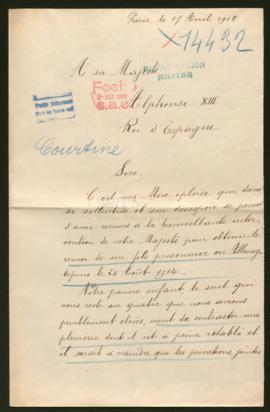 Paris, le 17 Avril 1918
X14432
A sa Majesté
MILITAR
Fecho
S.a.e.
Alphonse XIII
Roi d'Espagne
Courtine
Sire,
C'est une Mère éplorée que, dans
sa sollicitude et son désespoir se permet
d'avoir recours à la bienveillante inter
vention de votre Majesté pour obtenir le
renvoi de son fils prisonnier en Allemagne
depuis le 25 Août 1914.
Notre pauvre enfant le seul qui
nous reste sur quatre que nous avions
péniblement élevés, vient de contracter une
pleurésie dont il est à peine rétabli et
il serait à craindre que les privations jointes